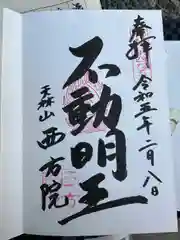 奉拝
令和五年二月八日
不動明王
天林山
西方院